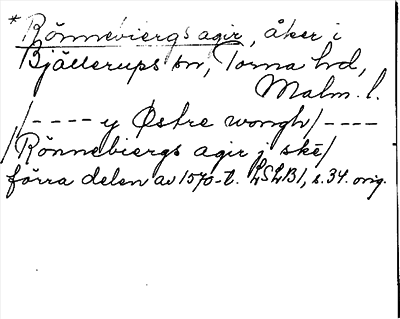 * Rönnebiergs agir, åker i
Bjällerups sn, Torna hd,
Malm. l.
/---- y Østre wongh/----
/Rönnebiergs agir j skē/
förra delen av 1570-t. LSLB1, s. 34. orig.